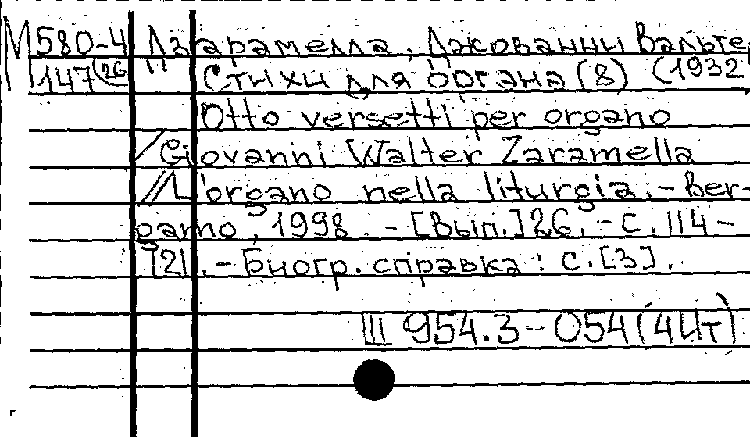 М580-4 Дзарамелла, Джованни Вальте
147(26 Стихи для органа (8) (1932
Otto versetti per organo
/ Giovanni Walter Zaramella
// L'organo nella liturgia. - Ber-
gamo, 1998. - [Вып.] 26. - С. 114-
121. - Биогр. справка: с. [3].
Ш 954.3-054(4Ит)